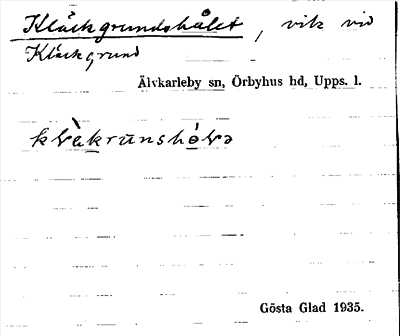 Kläckgrundshålet, vik vid
Kläckgrund
Älvkarleby sn, Örbyhus hd, Upps. l.
Gösta Glad 1935.